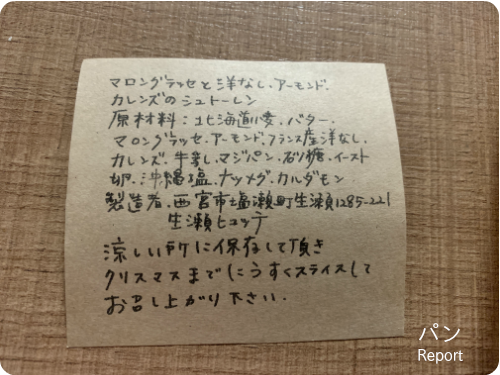 マロングラッセと洋なし.アーモンド.
カレンズのシュトーレン
原材料:北海道小麦.バター.
マロングラッセ.アーモンド.フランス産洋なし.
カレンズ.牛乳.マジパン.砂糖.イースト
卵.沖縄塩.ナツメグ.カルダモン
製造者.西宮市塩瀬町生瀬1285-221
生瀬ヒュッテ
涼しい所に保存して頂き
クリスマスまでにうすくスライスして
お召し上がり下さい.
パン
Report